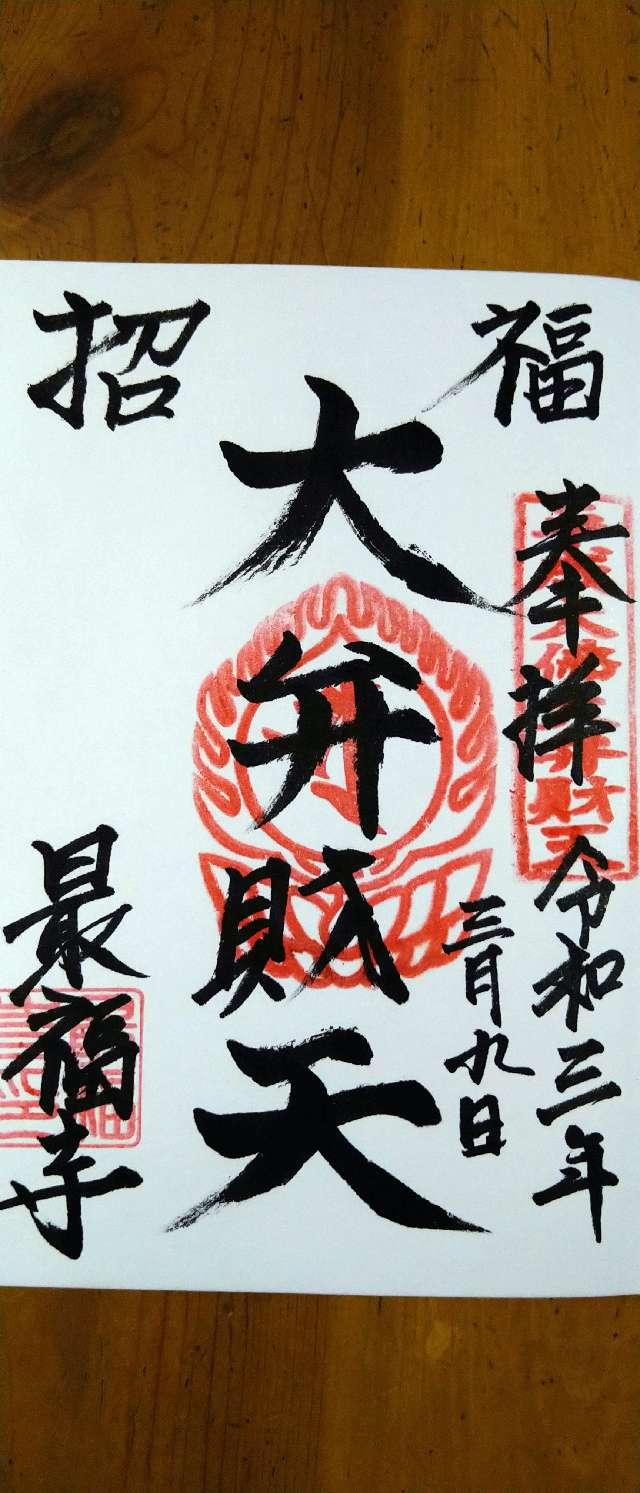 福
奉拝
令和三年
三月九日
大弁財天
招
最福寺